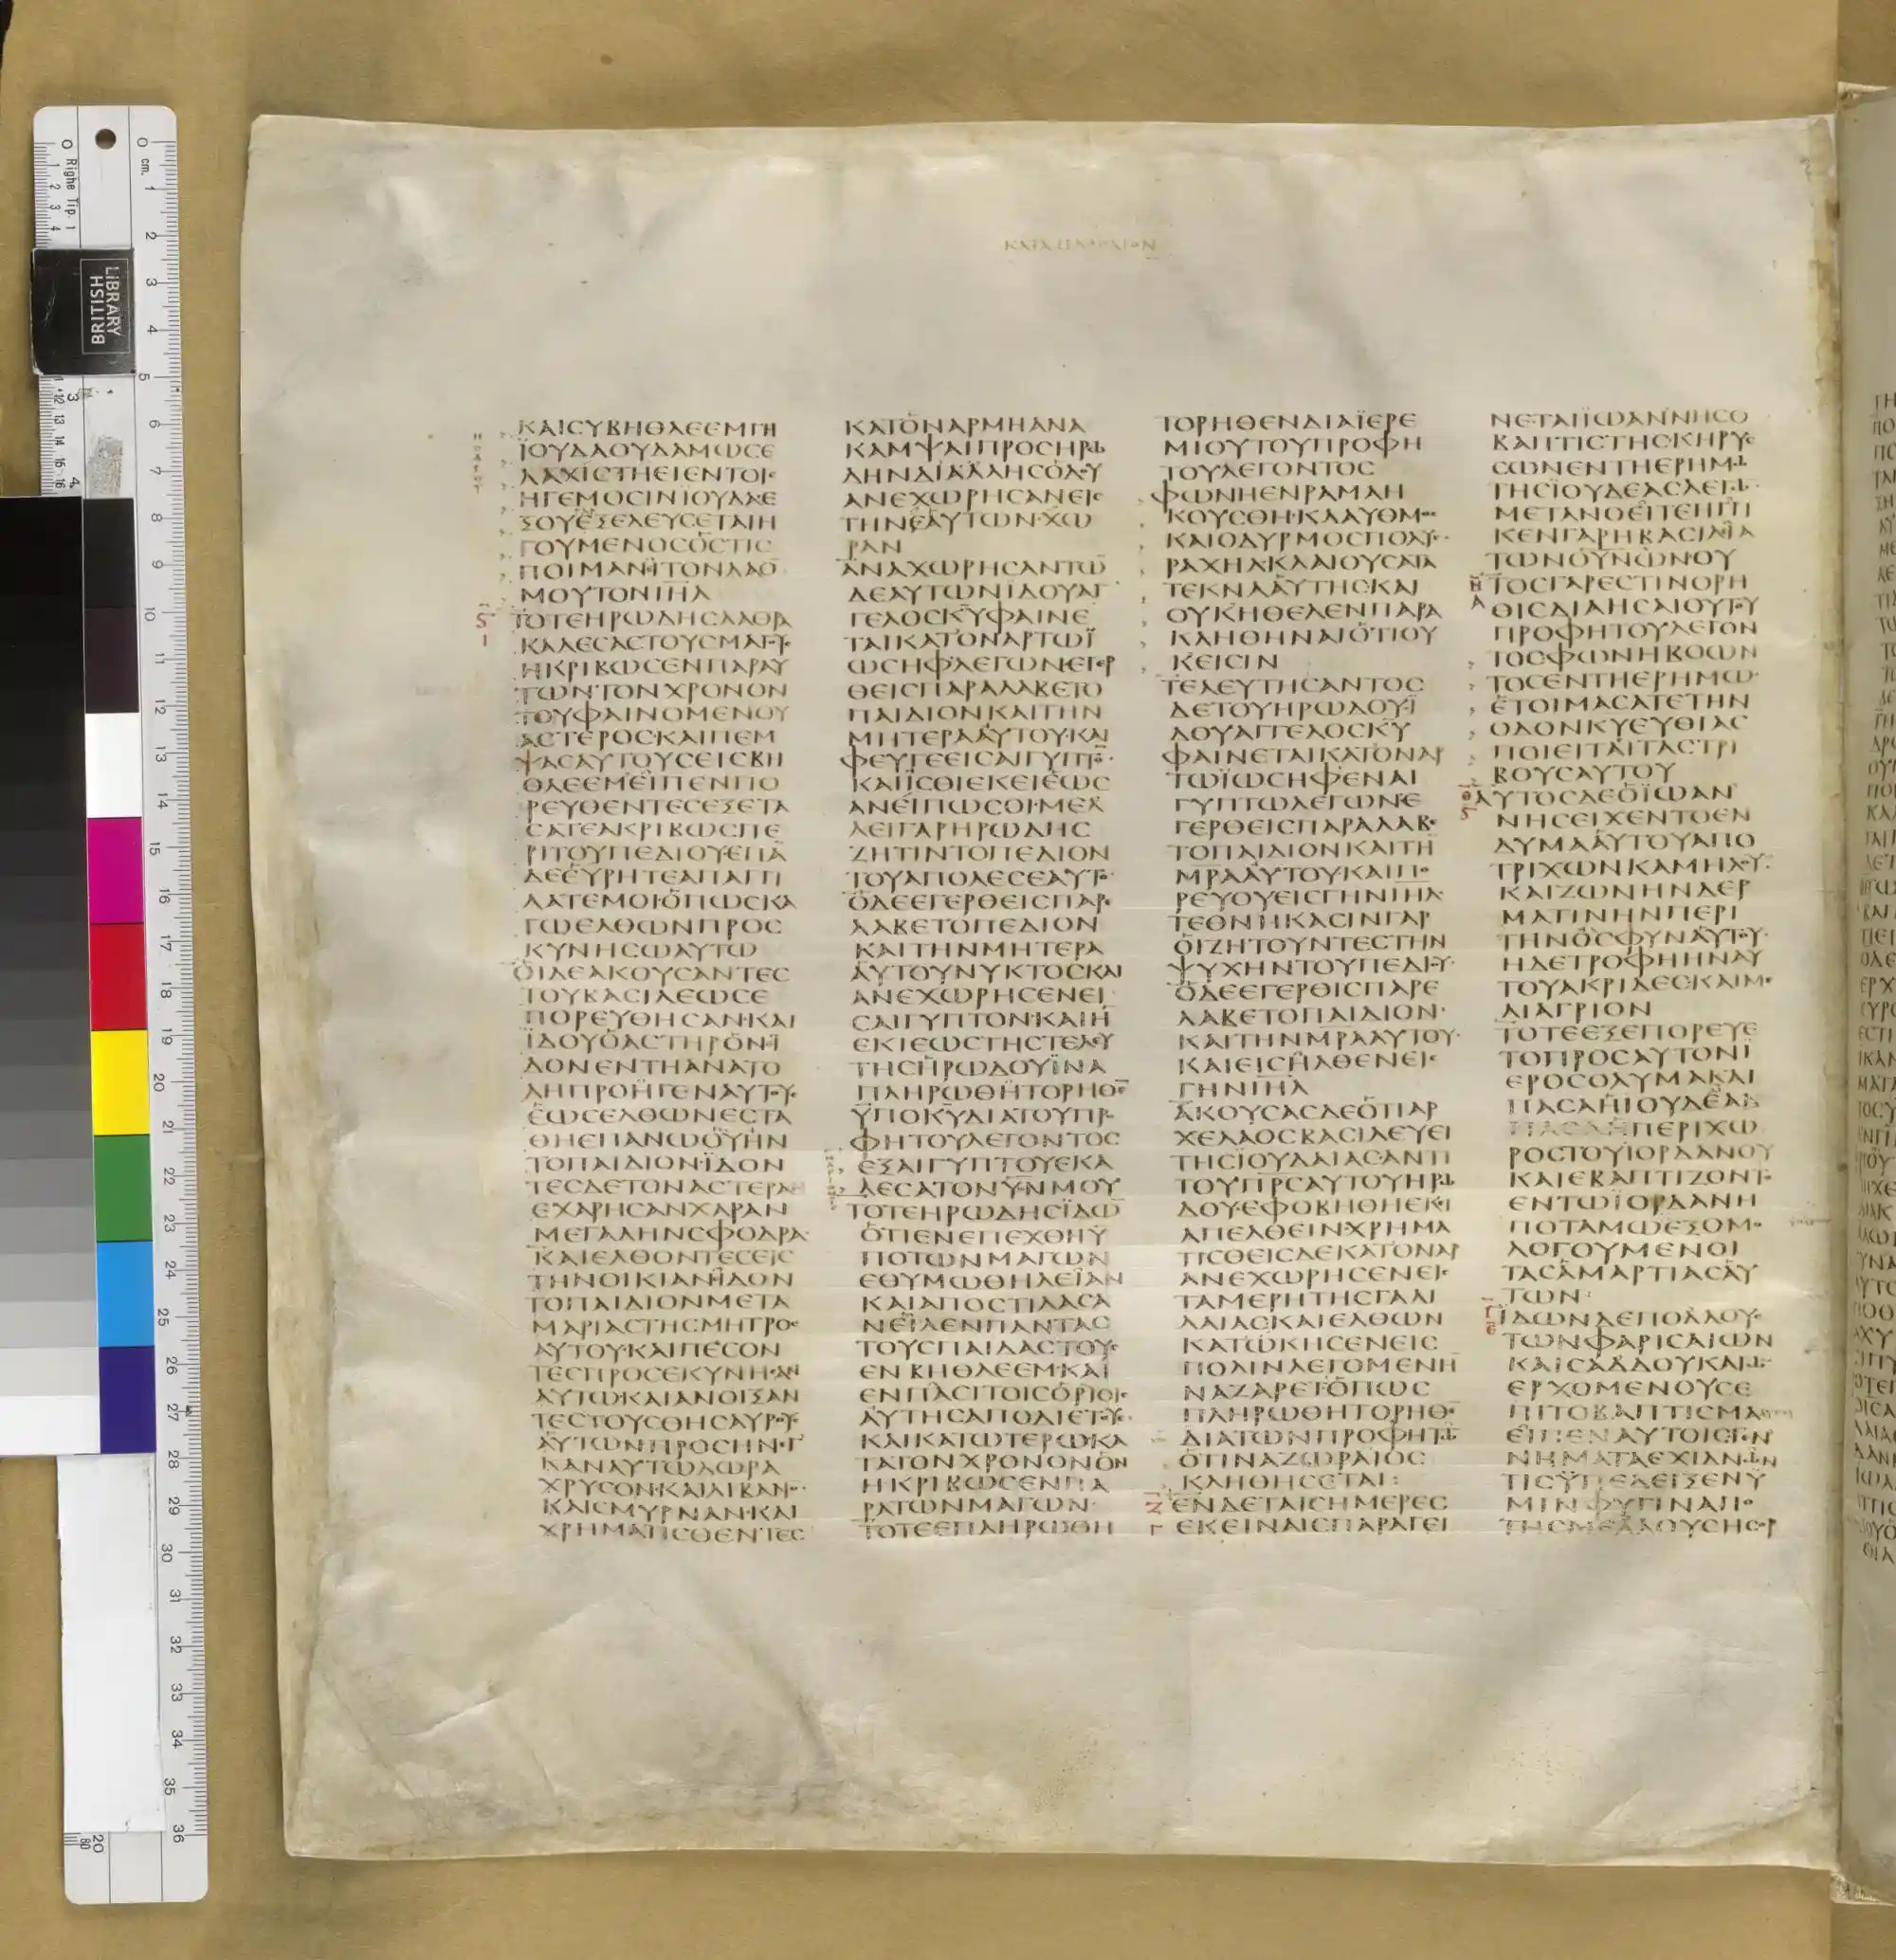 ΚΑΤΑ ΜΑΘΘΑΙΟΝ
ΚΑΙΣΥΒΗΘΛΕΕΜΓΗ
ΪΟΥΔΑΟΥΔΑΜΩΣΕ
ΛΑΧΙΣΤΗΕΙΕΝΤΟΙΣ
ΗΓΕΜΟΣΙΝΙΟΥΔΑΕ
ΞΟΥΕΞΕΛΕΥΣΕΤΑΙΗ
ΓΟΥΜΕΝΟΣΟΣΤΙΣ
ΠΟΙΜΑΝΙΤΟΝΛΑΟ̅
ΜΟΥΤΟΝΙΗΛ
ΤΟΤΕΗΡΩΔΗΣΛΑΘΡΑ
ΚΑΛΕΣΑΣΤΟΥΣΜΑΓΟΥΣ
ΗΚΡΙΒΩΣΕΝΠΑΡΑΥ
ΤΩΝΤΟΝΧΡΟΝΟΝ
ΤΟΥΦΑΙΝΟΜΕΝΟΥ
ΑΣΤΕΡΟΣΚΑΙΠΕΜ
ΨΑΣΑΥΤΟΥΣΕΙΣΒΗ
ΘΛΕΕΜΕΙΠΕΝΠΟ
ΡΕΥΘΕΝΤΕΣΕΞΕΤΑ
ΣΑΤΕΑΚΡΙΒΩΣΠΕ
ΡΙΤΟΥΠΕΔΙΟΥΕΠΑ̅
ΔΕΕΥΡΗΤΕΑΠΑΓΓΙ
ΛΑΤΕΜΟΙΟΠΩΣΚΑ
ΓΩΕΛΘΩΝΠΡΟΣ
ΚΥΝΗΣΩΑΥΤΩ
ΟΙΔΕΑΚΟΥΣΑΝΤΕΣ
ΤΟΥΒΑΣΙΛΕΩΣΕ
ΠΟΡΕΥΘΗΣΑΝΚΑΙ
ΪΔΟΥΟΑΣΤΗΡΟΝΪ
ΔΟΝΕΝΤΗΑΝΑΤΟ
ΛΗΠΡΟΗΓΕΝΑΥΤΟΥΣ
ΕΩΣΕΛΘΩΝΕΣΤΑ
ΘΗΕΠΑΝΩΟΥΗΝ
ΤΟΠΑΙΔΙΟΝΪΔΟΝ
ΤΕΣΔΕΤΟΝΑΣΤΕΡΑ
ΕΧΑΡΗΣΑΝΧΑΡΑΝ
ΜΕΓΑΛΗΝΣΦΟΔΡΑ
ΚΑΙΕΛΘΟΝΤΕΣΕΙΣ
ΤΗΝΟΙΚΙΑΝΪΔΟΝ
ΤΟΠΑΙΔΙΟΝΜΕΤΑ
ΜΑΡΙΑΣΤΗΣΜΗΤΡΟΣ
ΑΥΤΟΥΚΑΙΠΕΣΟΝ
ΤΕΣΠΡΟΣΕΚΥΝΗΣΑΝ
ΑΥΤΩΚΑΙΑΝΟΙΞΑΝ
ΤΕΣΤΟΥΣΘΗΣΑΥΡΟΥΣ
ΑΥΤΩΝΠΡΟΣΗΝΕΓ
ΚΑΝΑΥΤΩΔΩΡΑ
ΧΡΥΣΟΝΚΑΙΛΙΒΑΝΟΝ
ΚΑΙΣΜΥΡΝΑΝΚΑΙ
ΧΡΗΜΑΤΙΣΘΕΝΤΕΣ
ΚΑΤΟΝΑΡΜΗΑΝΑ
ΚΑΜΨΑΙΠΡΟΣΗΡΩ
ΔΗΝΔΙΑΛΛΗΣΟΔΟΥ
ΑΝΕΧΩΡΗΣΑΝΕΙΣ
ΤΗΝΕΑΥΤΩΝΧΩ
ΡΑΝ
ΑΝΑΧΩΡΗΣΑΝΤΩ̅
ΔΕΑΥΤΩΝΙΔΟΥΑΓ
ΓΕΛΟΣΚΥ̅ΦΑΙΝΕ
ΤΑΙΚΑΤΟΝΑΡΤΩΪ
ΩΣΗΦΛΕΓΩΝΕΓΕΡ
ΘΕΙΣΠΑΡΑΛΑΒΕΤΟ
ΠΑΙΔΙΟΝΚΑΙΤΗΝ
ΜΗΤΕΡΑΑΥΤΟΥΚΑΙ
ΦΕΥΓΕΕΙΣΑΙΓΥΠΤΟ̅
ΚΑΙΪΣΘΙΕΚΕΙΕΩΣ
ΑΝΕΙΠΩΣΟΙΜΕΛ
ΛΕΙΓΑΡΗΡΩΔΗΣ
ΖΗΤΙΝΤΟΠΕΔΙΟΝ
ΤΟΥΑΠΟΛΕΣΕΑΥΤΟ
ΟΔΕΕΓΕΡΘΕΙΣΠΑΡΕ
ΛΑΒΕΤΟΠΕΔΙΟΝ
ΚΑΙΤΗΝΜΗΤΕΡΑ
ΑΥΤΟΥΝΥΚΤΟΣΚΑΙ
ΑΝΕΧΩΡΗΣΕΝΕΙ
ΣΑΙΓΥΠΤΟΝΚΑΙΗ
ΕΚΙΕΩΣΤΗΣΤΕΛΕΥ
ΤΗΣΗΡΩΔΟΥΪΝΑ
ΠΛΗΡΩΘΗΤΟΡΗΘΕ̅
ΥΠΟΚΥ̅ΔΙΑΤΟΥΠΡΟ
ΦΗΤΟΥΛΕΓΟΝΤΟΣ
ΕΞΑΙΓΥΠΤΟΥΕΚΑ
ΛΕΣΑΤΟΝΥΙΟΝΜΟΥ
ΤΟΤΕΗΡΩΔΗΣΪΔΩ
ΟΤΙΕΝΕΠΕΧΘΗΫ
ΠΟΤΩΝΜΑΓΩΝ
ΕΘΥΜΩΘΗΛΕΙΑΝ
ΚΑΙΑΠΟΣΤΙΛΑΣΑ
ΝΕΙΛΕΝΠΑΝΤΑΣ
ΤΟΥΣΠΑΙΔΑΣΤΟΥΣ
ΕΝΒΗΘΛΕΕΜΚΑΙ
ΕΝΠΑΣΙΤΟΙΣΟΡΙΟΙΣ
ΑΥΤΗΣΑΠΟΔΙΕΤΟΥΣ
ΚΑΙΚΑΤΩΤΕΡΩΚΑ
ΤΑΤΟΝΧΡΟΝΟΝΟΝ
ΗΚΡΙΒΩΣΕΝΠΑ
ΡΑΤΩΝΜΑΓΩΝ
ΤΟΤΕΕΠΛΗΡΩΘΗ
ΤΟΡΗΘΕΝΔΙΑΪΕΡΕ
ΜΙΟΥΤΟΥΠΡΟΦΗ
ΤΟΥΛΕΓΟΝΤΟΣ
ΦΩΝΗΕΝΡΑΜΑΗ
ΚΟΥΣΘΗΚΛΑΥΘΜΟΣ
ΚΑΙΟΔΥΡΜΟΣΠΟΛΥΣ
ΡΑΧΗΛΚΛΑΙΟΥΣΑΤΑ
ΤΕΚΝΑΑΥΤΗΣΚΑΙ
ΟΥΚΗΘΕΛΕΝΠΑΡΑ
ΚΛΗΘΗΝΑΙΟΤΙΟΥ
ΚΕΙΣΙΝ
ΤΕΛΕΥΤΗΣΑΝΤΟΣ
ΔΕΤΟΥΗΡΩΔΟΥΪ
ΔΟΥΑΓΓΕΛΟΣΚΥ̅
ΦΑΙΝΕΤΑΙΚΑΤΟΝΑΡ
ΤΩΪΩΣΗΦΕΝΑΙ
ΓΥΠΤΩΛΕΓΩΝΕ
ΓΕΡΘΕΙΣΠΑΡΑΛΑΒΕ
ΤΟΠΑΙΔΙΟΝΚΑΙΤΗ
ΜΡΑΑΥΤΟΥΚΑΙΠΟ
ΡΕΥΟΥΕΙΣΓΗΝΙΗΛ
ΤΕΘΝΗΚΑΣΙΝΓΑΡ
ΟΙΖΗΤΟΥΝΤΕΣΤΗΝ
ΨΥΧΗΝΤΟΥΠΕΔΙΟΥ
ΟΔΕΕΓΕΡΘΙΣΠΑΡΕ
ΛΑΒΕΤΟΠΑΙΔΙΟΝ
ΚΑΙΤΗΝΜΡΑΑΥΤΟΥ
ΚΑΙΕΙΣΗΛΘΕΝΕΙΣ
ΓΗΝΙΗΛ
ΑΚΟΥΣΑΣΔΕΟΤΙΑΡ
ΧΕΛΑΟΣΒΑΣΙΛΕΥΕΙ
ΤΗΣΪΟΥΔΑΙΑΣΑΝΤΙ
ΤΟΥΠΡΣΑΥΤΟΥΗΡΩ
ΔΟΥΕΦΟΒΗΘΗΕΚΙ
ΑΠΕΛΘΕΙΝΧΡΗΜΑ
ΤΙΣΘΕΙΣΔΕΚΑΤΟΝΑΡ
ΑΝΕΧΩΡΗΣΕΝΕΙΣ
ΤΑΜΕΡΗΤΗΣΓΑΛΙ
ΛΑΙΑΣΚΑΙΕΛΘΩΝ
ΚΑΤΩΚΗΣΕΝΕΙΣ
ΠΟΛΙΝΛΕΓΟΜΕΝΗ
ΝΑΖΑΡΕΤΟΠΩΣ
ΠΛΗΡΩΘΗΤΟΡΗΘΕ
ΔΙΑΤΩΝΠΡΟΦΗΤΩ
ΟΤΙΝΑΖΩΡΑΙΟΣ
ΚΛΗΘΗΣΕΤΑΙ:
ΕΝΔΕΤΑΙΣΗΜΕΡΕΣ
ΕΚΕΙΝΑΙΣΠΑΡΑΓΕΙ
ΝΕΤΑΙΪΩΑΝΝΗΣΟ
ΒΑΠΤΙΣΤΗΣΚΗΡΥΣ
ΣΩΝΕΝΤΗΕΡΗΜΩ
ΤΗΣΪΟΥΔΕΑΣΛΕΓΩ
ΜΕΤΑΝΟΕΙΤΕΗΓΓΙ
ΚΕΝΓΑΡΗΒΑΣΙΛΙΑ
ΤΩΝΟΥΝΩΝΟΥ
ΤΟΣΓΑΡΕΣΤΙΝΟΡΗ
ΘΙΣΔΙΑΗΣΑΙΟΥΤΟΥ
ΠΡΟΦΗΤΟΥΛΕΓΟΝ
ΤΟΣΦΩΝΗΒΟΩΝ
ΤΟΣΕΝΤΗΕΡΗΜΩ
ΕΤΟΙΜΑΣΑΤΕΤΗΝ
ΟΔΟΝΚΥΕΥΘΙΑΣ
ΠΟΙΕΙΤΑΙΤΑΣΤΡΙ
ΒΟΥΣΑΥΤΟΥ
ΑΥΤΟΣΔΕΟΪΩΑΝ
ΝΗΣΕΙΧΕΝΤΟΕΝ
ΔΥΜΑΑΥΤΟΥΑΠΟ
ΤΡΙΧΩΝΚΑΜΗΛΟΥ
ΚΑΙΖΩΝΗΝΔΕΡ
ΜΑΤΙΝΗΝΠΕΡΙ
ΤΗΝΟΣΦΥΝΑΥΤΟΥ
ΗΔΕΤΡΟΦΗΗΝΑΥ
ΤΟΥΑΚΡΙΔΕΣΚΑΙΜΕ
ΛΙΑΓΡΙΟΝ
ΤΟΤΕΕΞΕΠΟΡΕΥΕ
ΤΟΠΡΟΣΑΥΤΟΝΙ
ΕΡΟΣΟΛΥΜΑΚΑΙ
ΠΑΣΑΗΙΟΥΔΕΑΚΑΙ
ΠΑΣΑΗΠΕΡΙΧΩ
ΡΟΣΤΟΥΙΟΡΔΑΝΟΥ
ΚΑΙΕΒΑΠΤΙΖΟΝΤΟ
ΕΝΤΩΪΟΡΔΑΝΗ
ΠΟΤΑΜΩΕΞΟΜΟ
ΛΟΓΟΥΜΕΝΟΙ
ΤΑΣΑΜΑΡΤΙΑΣΑΥ
ΤΩΝ
ΪΔΩΝΔΕΠΟΛΛΟΥΣ
ΤΩΝΦΑΡΙΣΑΙΩΝ
ΚΑΙΣΑΔΔΟΥΚΑΙΩ
ΕΡΧΟΜΕΝΟΥΣΕ
ΠΙΤΟΒΑΠΤΙΣΜΑ
ΕΙΠΕΝΑΥΤΟΙΣΓΕΝ
ΝΗΜΑΤΑΕΧΙΔΝΩΝ
ΤΙΣΫΠΕΔΕΙΞΕΝΫ
ΜΙΝΦΥΓΙΝΑΠΟ
ΤΗΣΜΕΛΛΟΥΣΗΣΟΡ